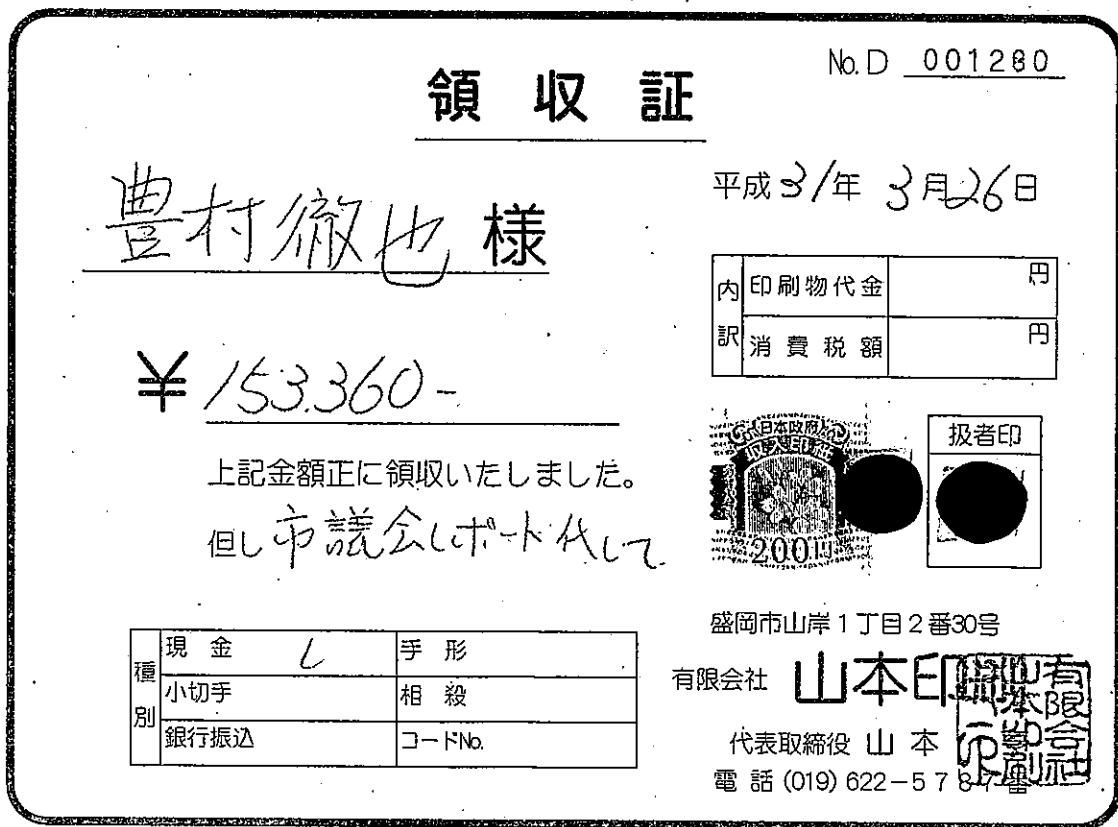 No. D 001280
領収証
平成31年 3月26日
豊村徹也 様
内訳
印刷物代金 円
消費税額 円
¥153.360-
上記金額正に領収いたしました。
但し市議会レポート代して
日本政府
収入印紙
200円
扱者印
種別
現金 レ 手形
小切手 相殺
銀行振込 コードNo.
盛岡市山岸1丁目2番30号
有限会社 山本印刷
代表取締役 山本
電話 (019) 622-5787番
有限会社山本印刷